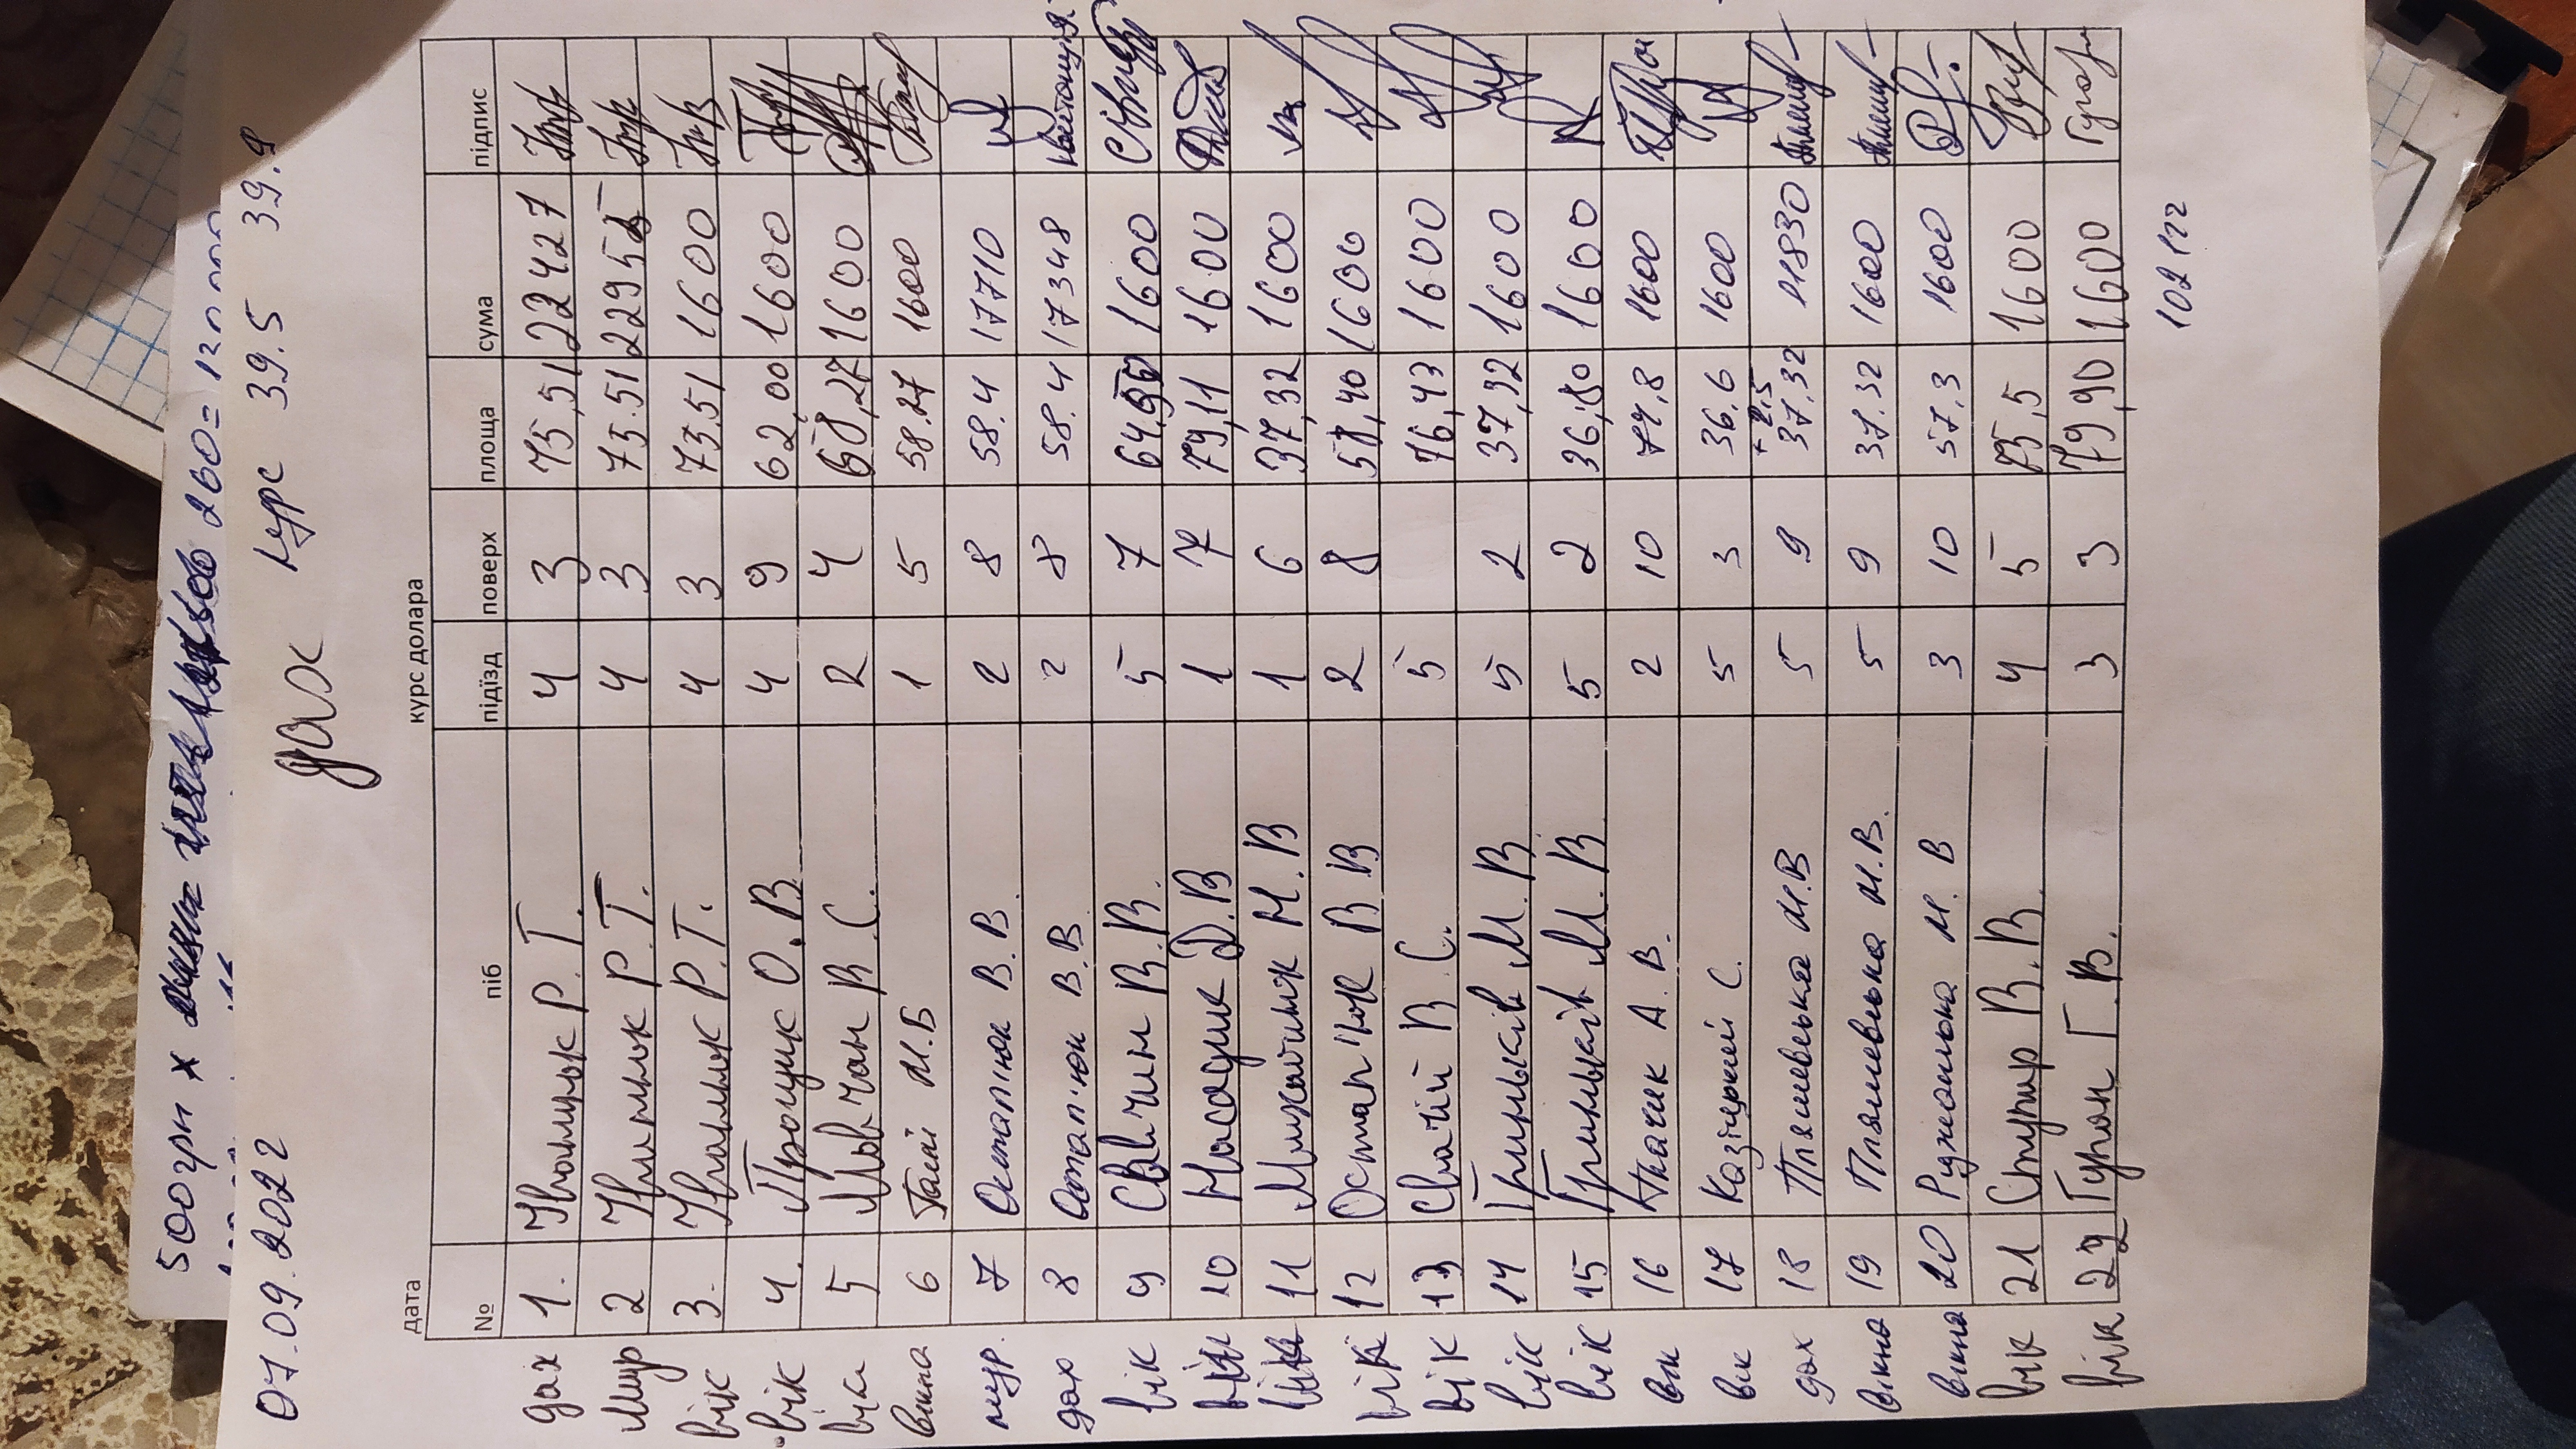 500грн х 260 = 130 000
07.09.2022 дах курс 39.5 39.9
дата курс долара
№ піб підїзд поверх площа сума підпис
дах 1. Іванюк Р. Т. 4 3 75,51 22427
мур 2 Іванюк Р. Т. 4 3 75.51 22955
вік 3. Іванюк Р. Т. 4 3 75.51 1600
вік 4. Прощик О. В. 4 9 62,00 1600
вік 5 Мовчан В. С. 2 4 58,27 1600
вікна 6 М.Б 1 5 58.27 1600
мур. 7 Остап'юк В. В. 2 8 58.4 17710
дах 8 Остап'юк В.В. 2 8 58.4 17348 квитанція
вік 9 Савчин В. В. 5 7 1600
вік 10 Насадик Д. В 1 7 79,11 1600
вік 11 Михайлюк М. В 1 6 37,32 1600
вік 12 Остап'юк В В 2 8 58,40 1600
вік 13 Свачій В. С. 5 76,43 1600
вік 14 Гриньків М. В. 5 2 37,32 1600
вік 15 Гриньків М. В 5 2 36,80 1600
вік 16 Ткачик А. В. 2 10 74,8 1600
вік 17 С. 5 3 36,6 1600
+ 2,5
дах 18 Пляшевська М.В 5 9 37,32 11830
вікна 19 Пляшевська М.В. 5 9 37.32 1600
вікна 20 М. В 3 10 57,3 1600
вік 21 Ступар В. В. 4 5 75,5 1600
вік 22 Г. В. 3 3 79,90 1600
102 122